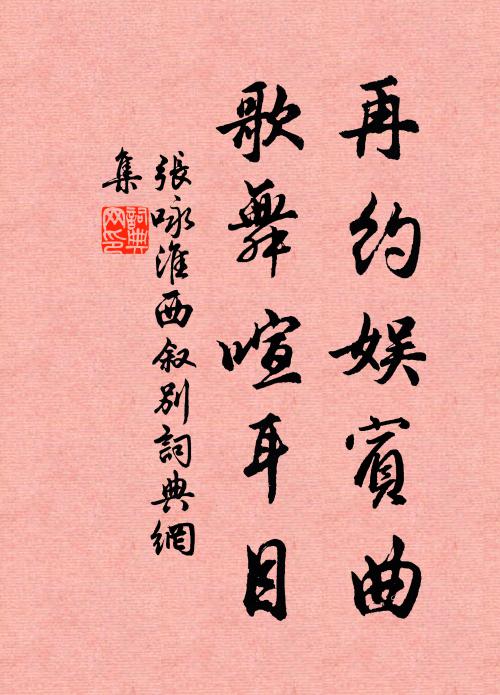 再约娱賓曲
歌舞喧耳目
張咏淮西叙别詞典網
集
詞典
网印